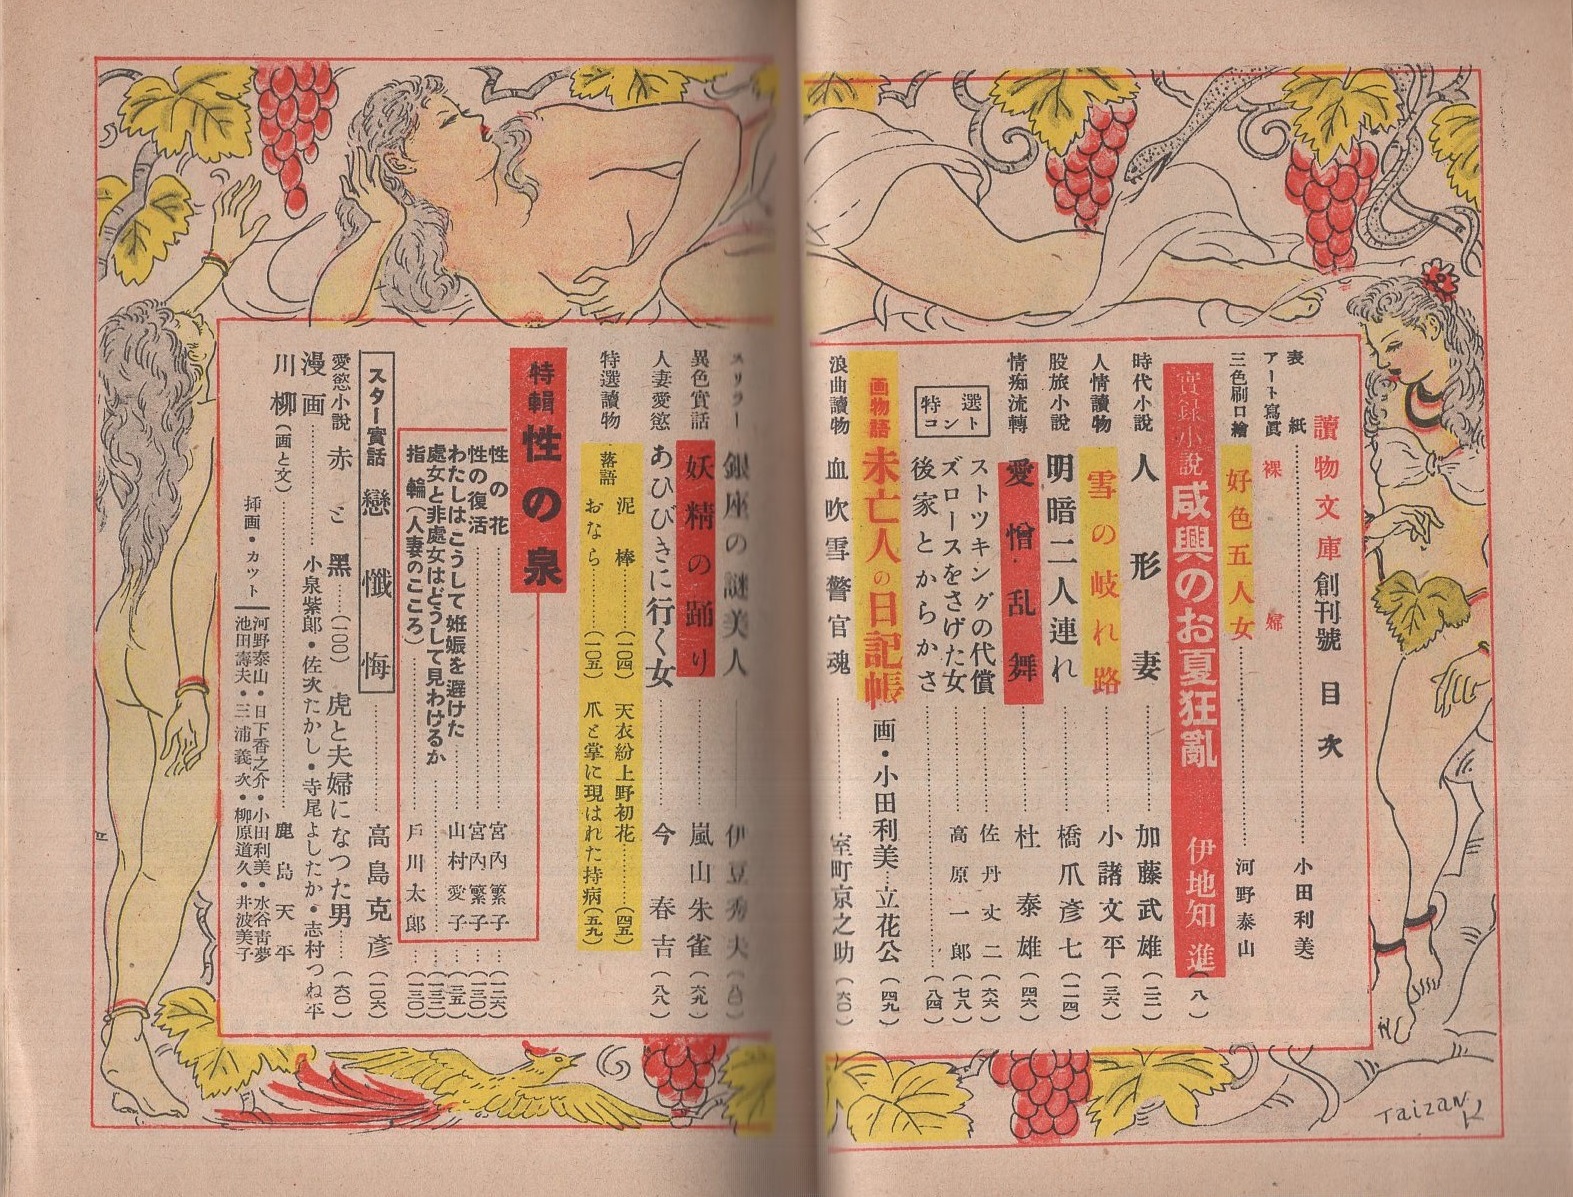 讀物文庫 創刊號 目次
表紙……小田利美
アート寫眞 裸婦
三色刷口繪 好色五人女……河野泰山
實録小説 咸興のお夏狂亂 伊地知 進(八)
時代小説 人形妻……加藤武雄(二二)
人情讀物 雪の岐れ路……小諸文平(三六)
股旅小説 明暗二人連れ……橋爪彦七(二四)
情痴流轉 愛憎乱舞……杜 泰雄(四六)
特選コント
ストツキングの代償……佐丹丈二(六六)
ズロースをさげた女……高原一郎(七八)
後家とからかさ……(八四)
画物語 未亡人の日記帳 画・小田利美…立花公(四九)
浪曲讀物 血吹雪警官魂……室町京之助(六〇)
スリラー 銀座の謎美人……伊豆秀夫
異色實話 妖精の踊り……嵐山朱雀(六九)
人妻愛慾 あひびきに行く女……今 春吉(八八)
特選讀物
落語
泥棒……(一〇四) 天衣紛上野初花……(四五)
おなら……(一〇五) 爪と掌に現はれた持病(五九)
特輯 性の泉
性の花……宮内繁子…(一二六)
性の復活……宮内繁子…(一三〇)
わたしはこうして姙娠を避けた……山村愛子…
處女と非處女はどうして見わけるか……
指輪(人妻のこころ)……戸川太郎…(一三〇)
スター實話 戀懺悔……高島克彦(一〇六)
愛慾小説 赤と黒……(一〇〇) 虎と夫婦になつた男……(六〇)
漫画……小泉紫郎・佐次たかし・寺尾よしたか・志村つね平
川柳(画と文)……鹿島天平
挿画・カット
河野泰山・日下香之介・小田利美・水谷靑夢
池田壽夫・三浦義次・柳原道久・井波美子
Taizan K